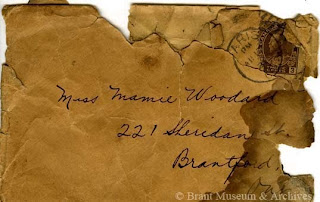 Miss Mamie Woodard
221 Sheridan St.
Brantford
© Brant Museum & Archives